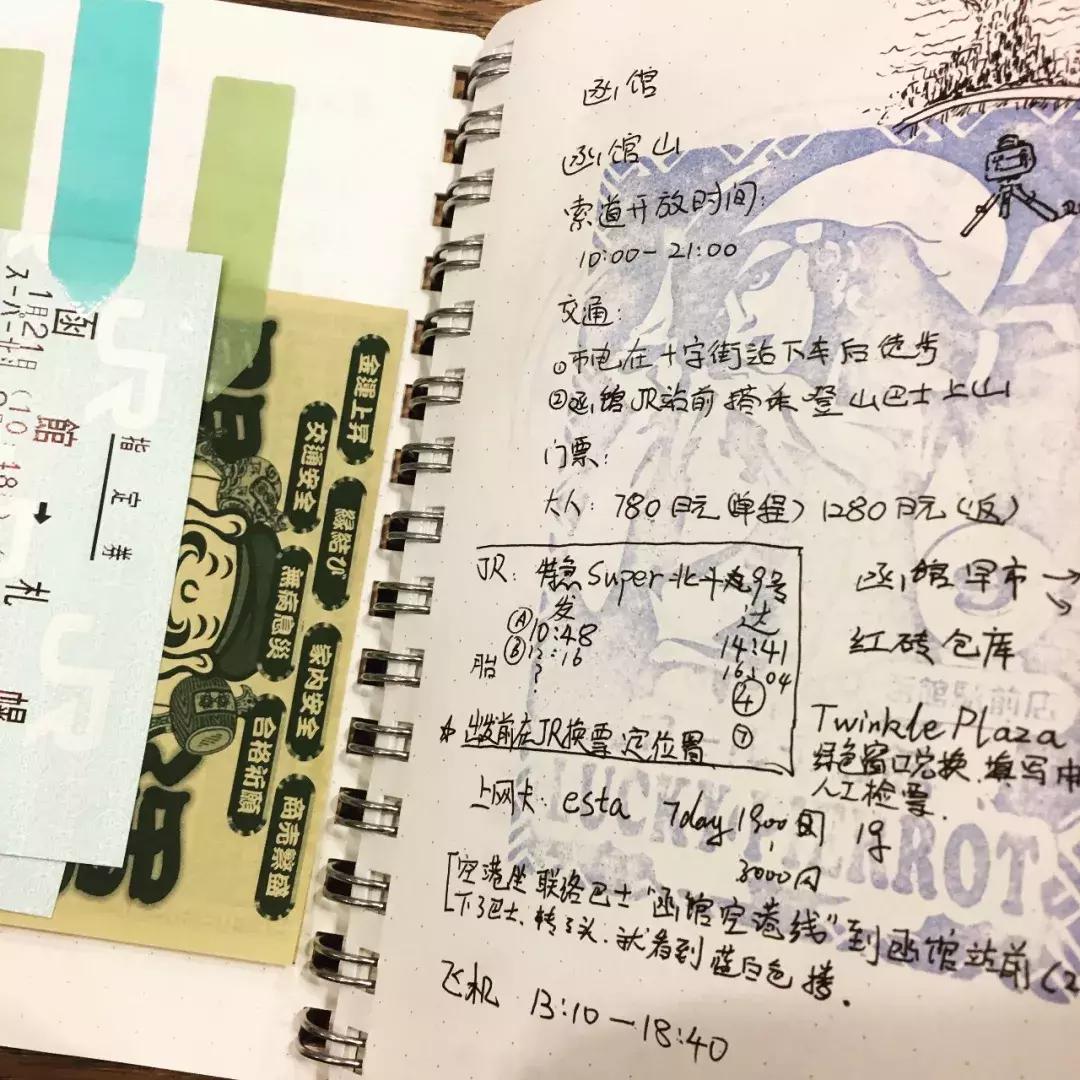 函
館
➡
札
幌
指定券
1月21日
スーパー
金運上昇
交通安全
縁結び
無病息災
家内安全
合格祈願
商売繁盛
JR
JR
函馆
函馆山
索道开放时间:
10:00-21:00
交通:
①市电在十字街站下车后徒步
②函馆JR站前搭乘登山巴士上山
门票:
大人: 780日元(单程) 1280日元(返)
JR: 特急Super北斗 9号
发 达
Ⓐ10:48 14:41
Ⓑ12:16 16:04
? ④
⑦
☆出发前在JR换票定位置
函馆早市
红砖仓库
店前
Twinkle Plaza
绿色窗口兑换.填写申
人工检票.
上网卡: esta 7day 1900円 1g
3000円
LUCKY PIERROT
[空港坐联络巴士"函馆空港线"到函馆站前(2
下了巴士、转了头.就看到蓝白色楼.
飞机 13:10-18:40